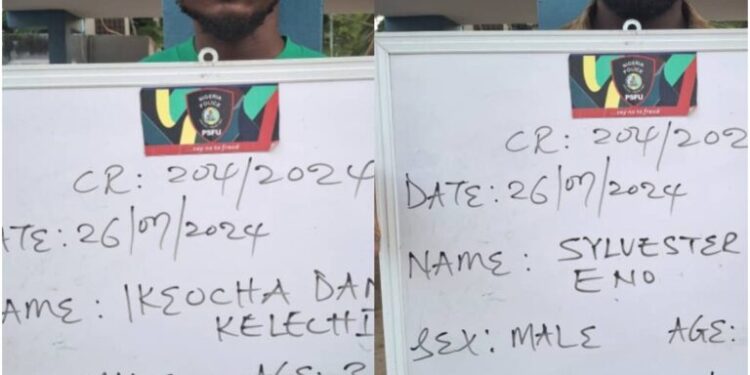 NIGERIA
POLICE
PSFU
...say no to fraud
CR: 204/2024
ATE: 26/07/2024
AME: IKEOCHA DAN
KELECHI
NIGERIA
POLICE
PSFU
...say no to fraud
CR: 204/202
DATE: 26/07/2024
NAME: SYLVESTER
ENO
SEX: MALE AGE: